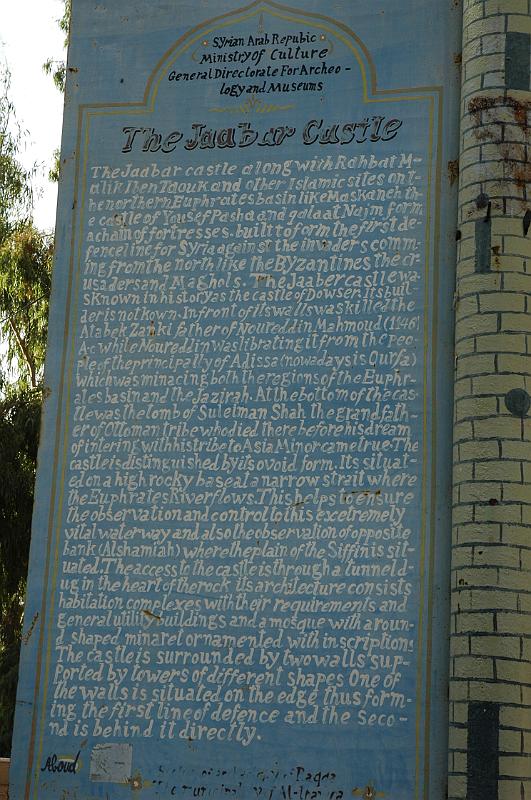 Syrian Arab Repubic
Ministry of Culture
General Directorate For Archeo-
logy and Museums
The Jaabar Castle
The Jaabar castle along with Rahbat M-
alik Ihen Taouk and other Islamic sites on t-
he northern Euphrates basin like Maskaneh th-
e castle of Yousef Pasha and qalaat Najm form
a chain of fortresses. built to form the first de-
fence line for Syria against the invaders comm-
ing from the north like the Byzantines the cr-
usaders and Maghols. The Jaaber castle wa-
s known in history as the castle of Dowser. Its buil-
der is not kown. In front of its walls was killed the
Atabek Zanki father of Noureddin Mahmoud (1146)
A.c while Noureddin was librating it from the peo-
ple of the principally of Adissa (nowadays is Ourfa)
which was minacing both the regions of the Euphr-
ates basin and the Jazirah. At the bottom of the cas-
tle was the tomb of Suleiman Shah the grand fath-
er of Ottoman tribe who died there before his dream
of intering with his tribe to Asia Minor came true. The
castle is distinguished by its ovoid form. Its situat-
ed on a high rocky base at a narrow strait where
the Euphrates River flows. This helps to ensure
the observation and control to this excetremely
vital waterway and also the observation of opposite
bank (Alshamiah) where the plain of the Siffin is sit-
uated. The access to the castle is through a tunnel d-
ug in the heart of the rock its architecture consists
habitation complexes with their requirements and
general utility buildings and a mosque with a roun-
d shaped minaret ornamented with inscriptions
The castle is surrounded by two walls sup-
ported by towers of different shapes One of
the walls is situated on the edge thus form-
ing the first line of defence and the seco-
nd is behind it directly.
Aboud
of Raqqa
The municipality of